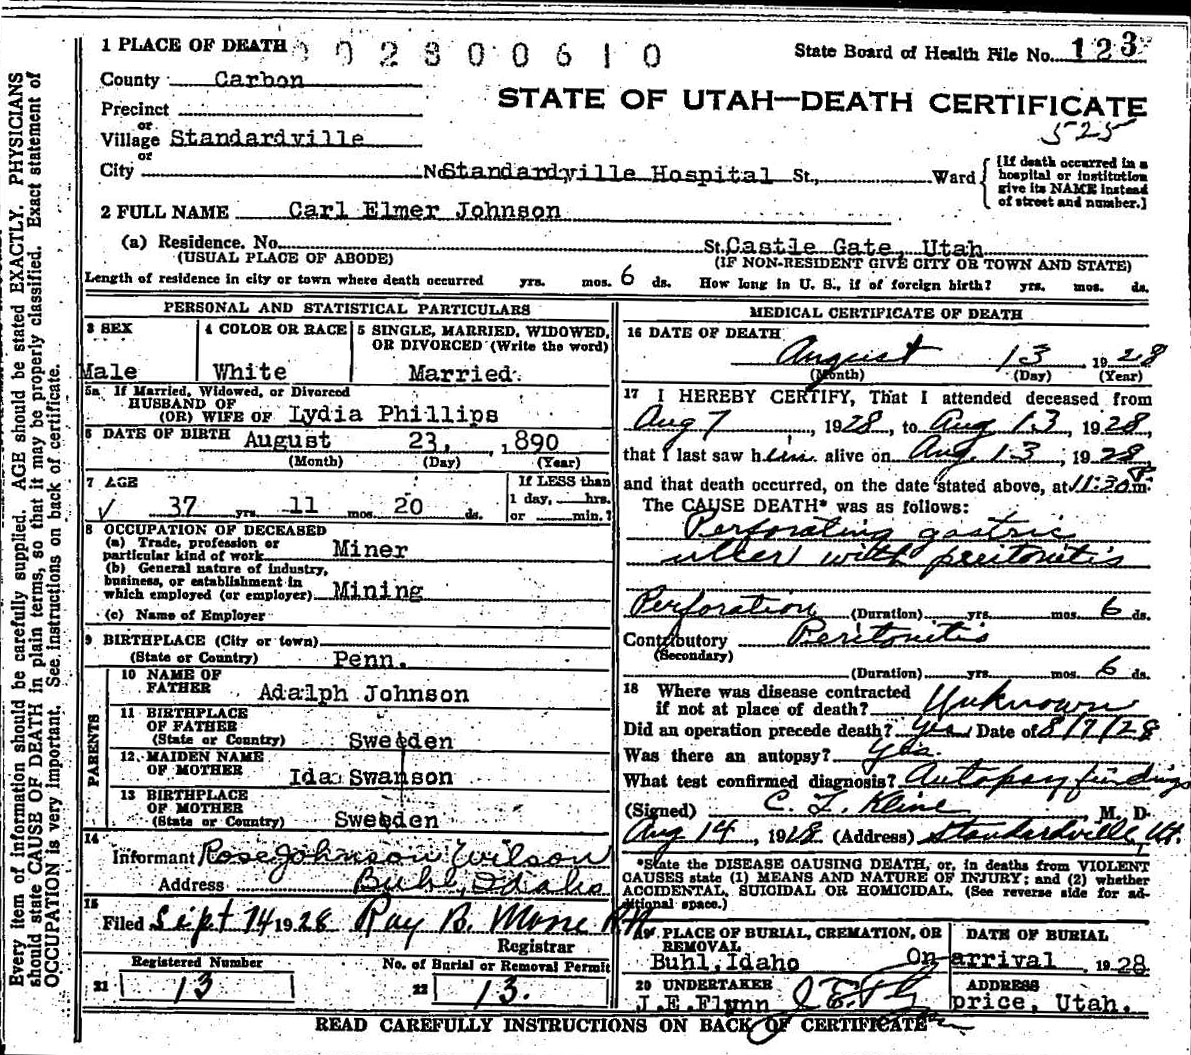 1 PLACE OF DEATH 0 0 2 8 0 0 6 1 0 State Board of Health File No. 123
County Carbon
STATE OF UTAH—DEATH CERTIFICATE
Precinct
525
or
Village Standardville
or
City No. Standardville Hospital St., Ward {If death occurred in a hospital or institution give its NAME instead of street and number.}
2 FULL NAME Carl Elmer Johnson
(a) Residence. No. St. Castle Gate, Utah
(USUAL PLACE OF ABODE) (IF NON-RESIDENT GIVE CITY OR TOWN AND STATE)
Length of residence in city or town where death occurred yrs. mos. 6 ds. How long in U. S., if of foreign birth? yrs. mos. ds.
PERSONAL AND STATISTICAL PARTICULARS
3 SEX
Male
4 COLOR OR RACE
White
5 SINGLE, MARRIED, WIDOWED,
OR DIVORCED (Write the word)
Married.
5a If Married, Widowed, or Divorced
HUSBAND OF
(OR) WIFE OF Lydia Phillips
6 DATE OF BIRTH August 23, ,890
(Month) (Day) (Year)
7 AGE
√ 37 yrs. 11 mos. 20 ds.
If LESS than
1 day, hrs.
or min.?
8 OCCUPATION OF DECEASED
(a) Trade, profession or
particular kind of work Miner
(b) General nature of industry,
business, or establishment in
which employed (or employer) Mining
(c) Name of Employer
9 BIRTHPLACE (City or town)
(State or Country) Penn.
PARENTS
10 NAME OF
FATHER Adalph Johnson
11 BIRTHPLACE
OF FATHER
(State or Country) Sweeden
12 MAIDEN NAME
OF MOTHER Ida Swanson
13 BIRTHPLACE
OF MOTHER
(State or Country) Sweeden
14
Informant Rose Johnson Wilson
Address Buhl, Idaho
15
Filed Sept 14 1928 Ray B.
Registrar
Registered Number
21 13
No. of Burial or Removal Permit
22 13.
MEDICAL CERTIFICATE OF DEATH
16 DATE OF DEATH
August 13 1928
(Month) (Day) (Year)
17 I HEREBY CERTIFY, That I attended deceased from
Aug 7, 1928, to Aug 13, 1928,
that I last saw him alive on Aug. 13, 1928,
and that death occurred, on the date stated above, at 11:30 P m.
The CAUSE DEATH* was as follows:
Perforating gastric
ulcer with preitonitis
Perforation (Duration) yrs. mos. 6 ds.
Contributory Peritonitis
(Secondary)
(Duration) yrs. mos. 6 ds.
18 Where was disease contracted
if not at place of death? Unknown
Did an operation precede death? yes Date of 8/7/28
Was there an autopsy? Yes.
What test confirmed diagnosis? Autopsy findings
(Signed) C. L. Kline M. D.
Aug 14 1928 (Address) Standardville, Ut.
*State the DISEASE CAUSING DEATH, or, in deaths from VIOLENT
CAUSES state (1) MEANS AND NATURE OF INJURY; and (2) whether
ACCIDENTAL, SUICIDAL OR HOMICIDAL. (See reverse side for ad-
ditional space.)
19 PLACE OF BURIAL, CREMATION, OR
REMOVAL
Buhl, Idaho
DATE OF BURIAL
On arrival, 1928
20 UNDERTAKER
J.E.Flynn
ADDRESS
price, Utah.
READ CAREFULLY INSTRUCTIONS ON BACK OF CERTIFICATE
Every item of information should be carefully supplied. AGE should be stated EXACTLY. PHYSICIANS
should state CAUSE OF DEATH in plain terms, so that it may be properly classified. Exact statement of
OCCUPATION is very important. See instructions on back of certificate.